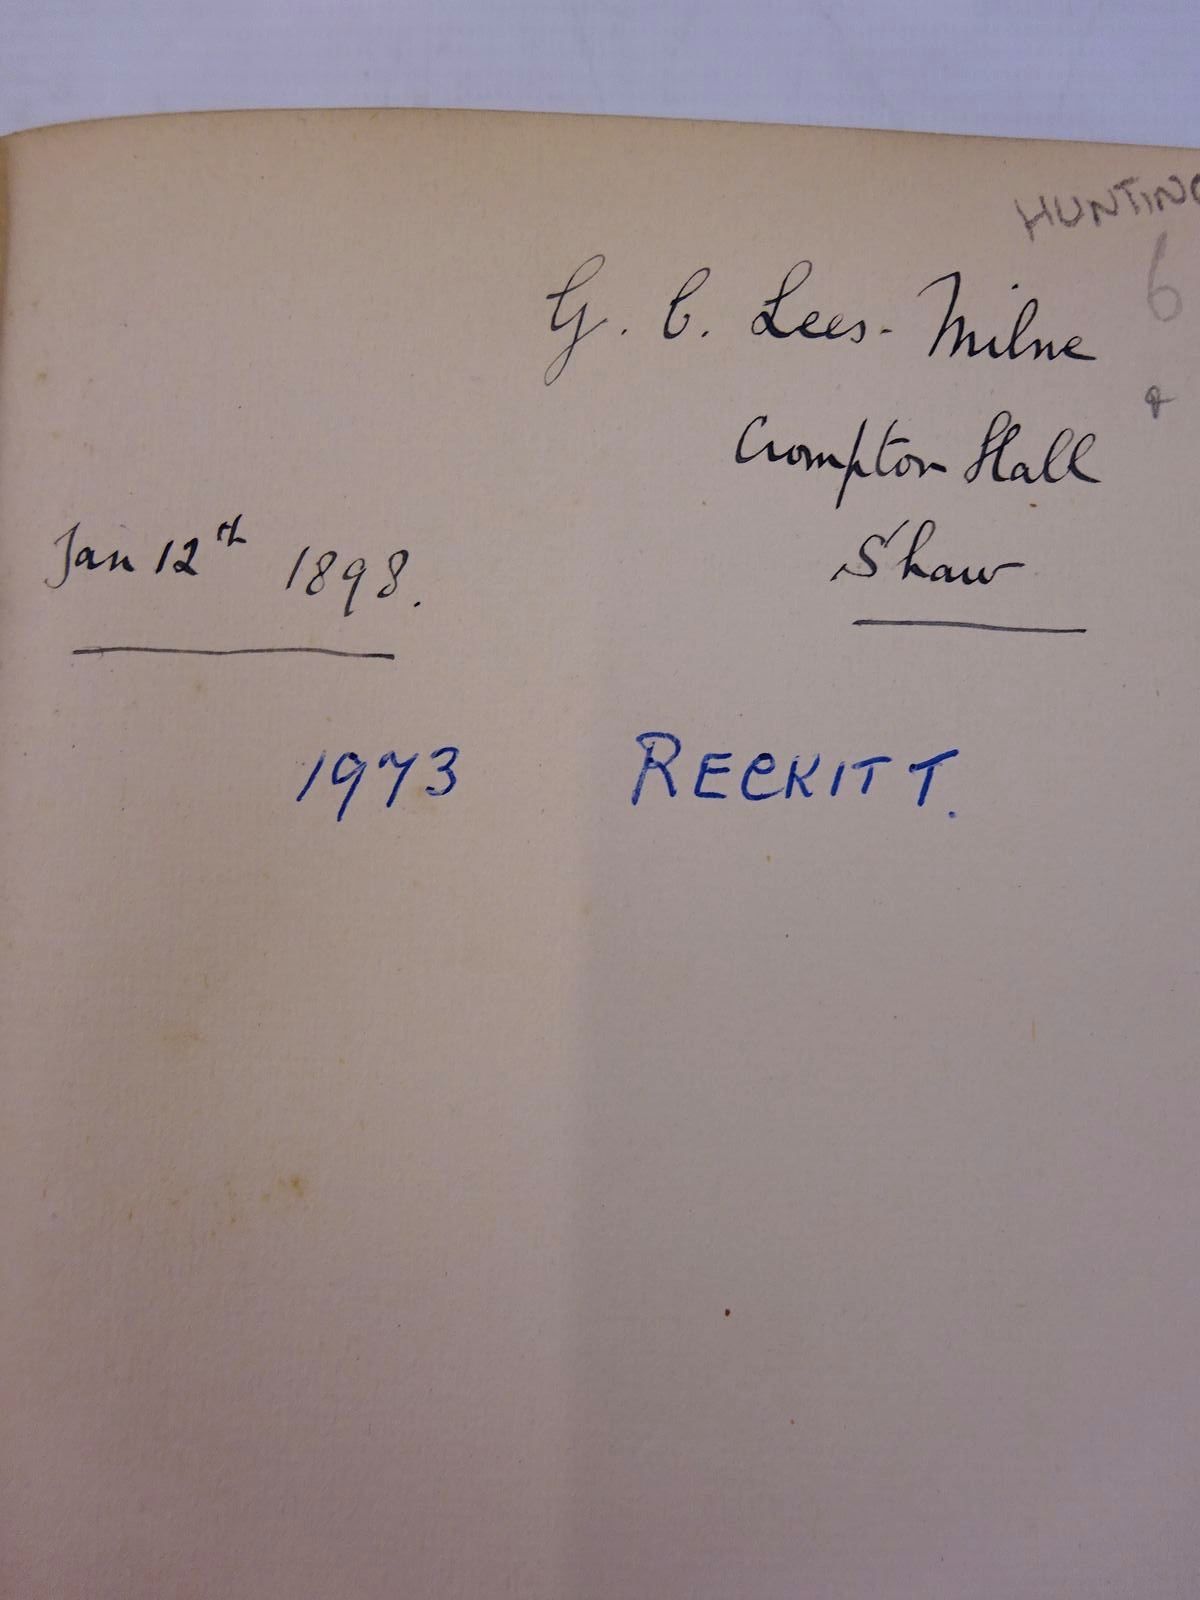 HUNTING
6
G. C. Lees-Milne
Crompton Hall
Shaw
Jan 12th 1898.
1973 RECKITT.